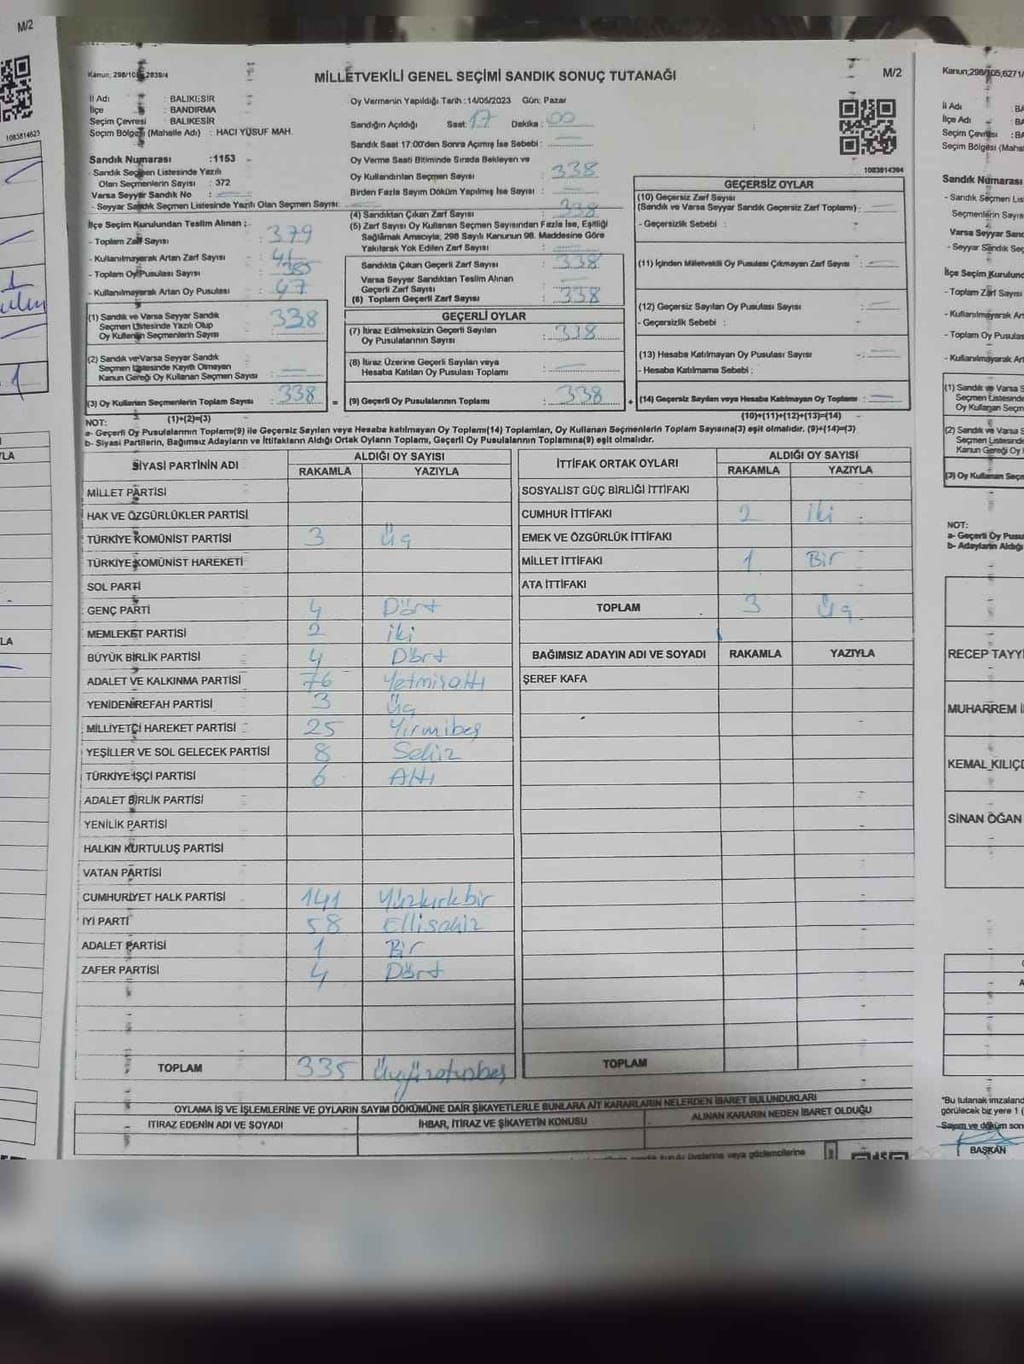 M/2
1083814623
Kanun; 298/105,2839/4
MİLLETVEKİLİ GENEL SEÇİMİ SANDIK SONUÇ TUTANAĞI
M/2
İl Adı : BALIKESİR
İlçe : BANDIRMA
Seçim Çevresi : BALIKESİR
Seçim Bölgesi (Mahalle Adı) : HACI YUSUF MAH.
Oy Vermenin Yapıldığı Tarih : 14/05/2023 Gün: Pazar
Sandığın Açıldığı Saat: 17 Dakika : 00
Sandık Saat 17:00'den Sonra Açılmış İse Sebebi :
Oy Verme Saati Bitiminde Sırada Bekleyen ve
Oy Kullandırılan Seçmen Sayısı : 338
Birden Fazla Sayım Döküm Yapılmış İse Sayısı :
1083814394
Sandık Numarası :1153
- Sandık Seçmen Listesinde Yazılı
Olan Seçmenlerin Sayısı : 372
Varsa Seyyar Sandık No :
- Seyyar Sandık Seçmen Listesinde Yazılı Olan Seçmen Sayısı:
İlçe Seçim Kurulundan Teslim Alınan ;
- Toplam Zarf Sayısı : 379
- Kullanılmayarak Artan Zarf Sayısı : 41
- Toplam Oy Pusulası Sayısı : 385
- Kullanılmayarak Artan Oy Pusulası : 47
(1) Sandık ve Varsa Seyyar Sandık
Seçmen Listesinde Yazılı Olup
Oy Kullanan Seçmenlerin Sayısı : 338
(2) Sandık ve Varsa Seyyar Sandık
Seçmen Listesinde Kayıtlı Olmayan
Kanun Gereği Oy Kullanan Seçmen Sayısı :
(3) Oy Kullanan Seçmenlerin Toplam Sayısı : 338
(1)+(2)=(3)
(4) Sandıktan Çıkan Zarf Sayısı : 338
(5) Zarf Sayısı Oy Kullanan Seçmen Sayısından Fazla İse, Eşitliği
Sağlamak Amacıyla, 298 Sayılı Kanunun 98. Maddesine Göre
Yakılarak Yok Edilen Zarf Sayısı :
Sandıkta Çıkan Geçerli Zarf Sayısı : 338
Varsa Seyyar Sandıktan Teslim Alınan
Geçerli Zarf Sayısı :
(6) Toplam Geçerli Zarf Sayısı : 338
GEÇERLİ OYLAR
(7) İtiraz Edilmeksizin Geçerli Sayılan
Oy Pusulalarının Sayısı : 338
(8) İtiraz Üzerine Geçerli Sayılan veya
Hesaba Katılan Oy Pusulası Toplamı :
= (9) Geçerli Oy Pusulalarının Toplamı : 338 +
GEÇERSİZ OYLAR
(10) Geçersiz Zarf Sayısı
(Sandık ve Varsa Seyyar Sandık Geçersiz Zarf Toplamı) :
- Geçersizlik Sebebi :
(11) İçinden Milletvekili Oy Pusulası Çıkmayan Zarf Sayısı :
(12) Geçersiz Sayılan Oy Pusulası Sayısı :
- Geçersizlik Sebebi :
(13) Hesaba Katılmayan Oy Pusulası Sayısı :
- Hesaba Katılmama Sebebi :
(14) Geçersiz Sayılan veya Hesaba Katılmayan Oy Toplamı :
(10)+(11)+(12)+(13)=(14)
NOT:
a- Geçerli Oy Pusulalarının Toplamı(9) ile Geçersiz Sayılan veya Hesaba katılmayan Oy Toplamı(14) Toplamları, Oy Kullanan Seçmenlerin Toplam Sayısına(3) eşit olmalıdır. (9)+(14)=(3)
b- Siyasi Partilerin, Bağımsız Adayların ve İttifakların Aldığı Ortak Oyların Toplamı, Geçerli Oy Pusulalarının Toplamına(9) eşit olmalıdır.
SİYASİ PARTİNİN ADI ALDIĞI OY SAYISI
RAKAMLA YAZIYLA
MİLLET PARTİSİ
HAK VE ÖZGÜRLÜKLER PARTİSİ
TÜRKİYE KOMÜNİST PARTİSİ 3 Üç
TÜRKİYE KOMÜNİST HAREKETİ
SOL PARTİ
GENÇ PARTİ 4 Dört
MEMLEKET PARTİSİ 2 iki
BÜYÜK BİRLİK PARTİSİ 4 Dört
ADALET VE KALKINMA PARTİSİ 76 Yetmişaltı
YENİDEN REFAH PARTİSİ 3 Üç
MİLLİYETÇİ HAREKET PARTİSİ 25 Yirmibeş
YEŞİLLER VE SOL GELECEK PARTİSİ 8 Sekiz
TÜRKİYE İŞÇİ PARTİSİ 6 Altı
ADALET BİRLİK PARTİSİ
YENİLİK PARTİSİ
HALKIN KURTULUŞ PARTİSİ
VATAN PARTİSİ
CUMHURİYET HALK PARTİSİ 141 Yüzkırkbir
İYİ PARTİ 58 Ellisekiz
ADALET PARTİSİ 1 Bir
ZAFER PARTİSİ 4 Dört
TOPLAM 335 Üçyüzotuzbeş
İTTİFAK ORTAK OYLARI ALDIĞI OY SAYISI
RAKAMLA YAZIYLA
SOSYALİST GÜÇ BİRLİĞİ İTTİFAKI
CUMHUR İTTİFAKI 2 iki
EMEK VE ÖZGÜRLÜK İTTİFAKI
MİLLET İTTİFAKI 1 Bir
ATA İTTİFAKI
TOPLAM 3 Üç
BAĞIMSIZ ADAYIN ADI VE SOYADI RAKAMLA YAZIYLA
ŞEREF KAFA
TOPLAM
OYLAMA İŞ VE İŞLEMLERİNE VE OYLARIN SAYIM DÖKÜMÜNE DAİR ŞİKAYETLERLE BUNLARA AİT KARARLARIN NELERDEN İBARET BULUNDUKLARI
İTİRAZ EDENİN ADI VE SOYADI İHBAR, İTİRAZ VE ŞİKAYETİN KONUSU ALINAN KARARIN NEDEN İBARET OLDUĞU
Kanun;298/105,6271/
İl Adı : BA
İlçe Adı : BA
Seçim Çevresi : BA
Seçim Bölgesi (Mahal
Sandık Numarası
- Sandık Seçmen Lis
Seçmenlerin Sayısı
Varsa Seyyar Sand
- Seyyar Sandık Seç
İlçe Seçim Kurulund
- Toplam Zarf Sayısı
- Kullanılmayarak Art
- Toplam Oy Pusulası
- Kullanılmayarak Art
(1) Sandık ve Varsa S
Seçmen Listesinde
Oy Kullanan Seçm
(2) Sandık ve Varsa S
Seçmen Listesinde
Kanun Gereği Oy K
(3) Oy Kullanan Seçm
NOT:
a- Geçerli Oy Pusu
b- Adayların Aldığı
RECEP TAYYİ
MUHARREM İ
KEMAL KILIÇD
SİNAN OĞAN
"Bu tutanak imzaland
görülecek bir yere 1 (
Sayım ve döküm son
BAŞKAN